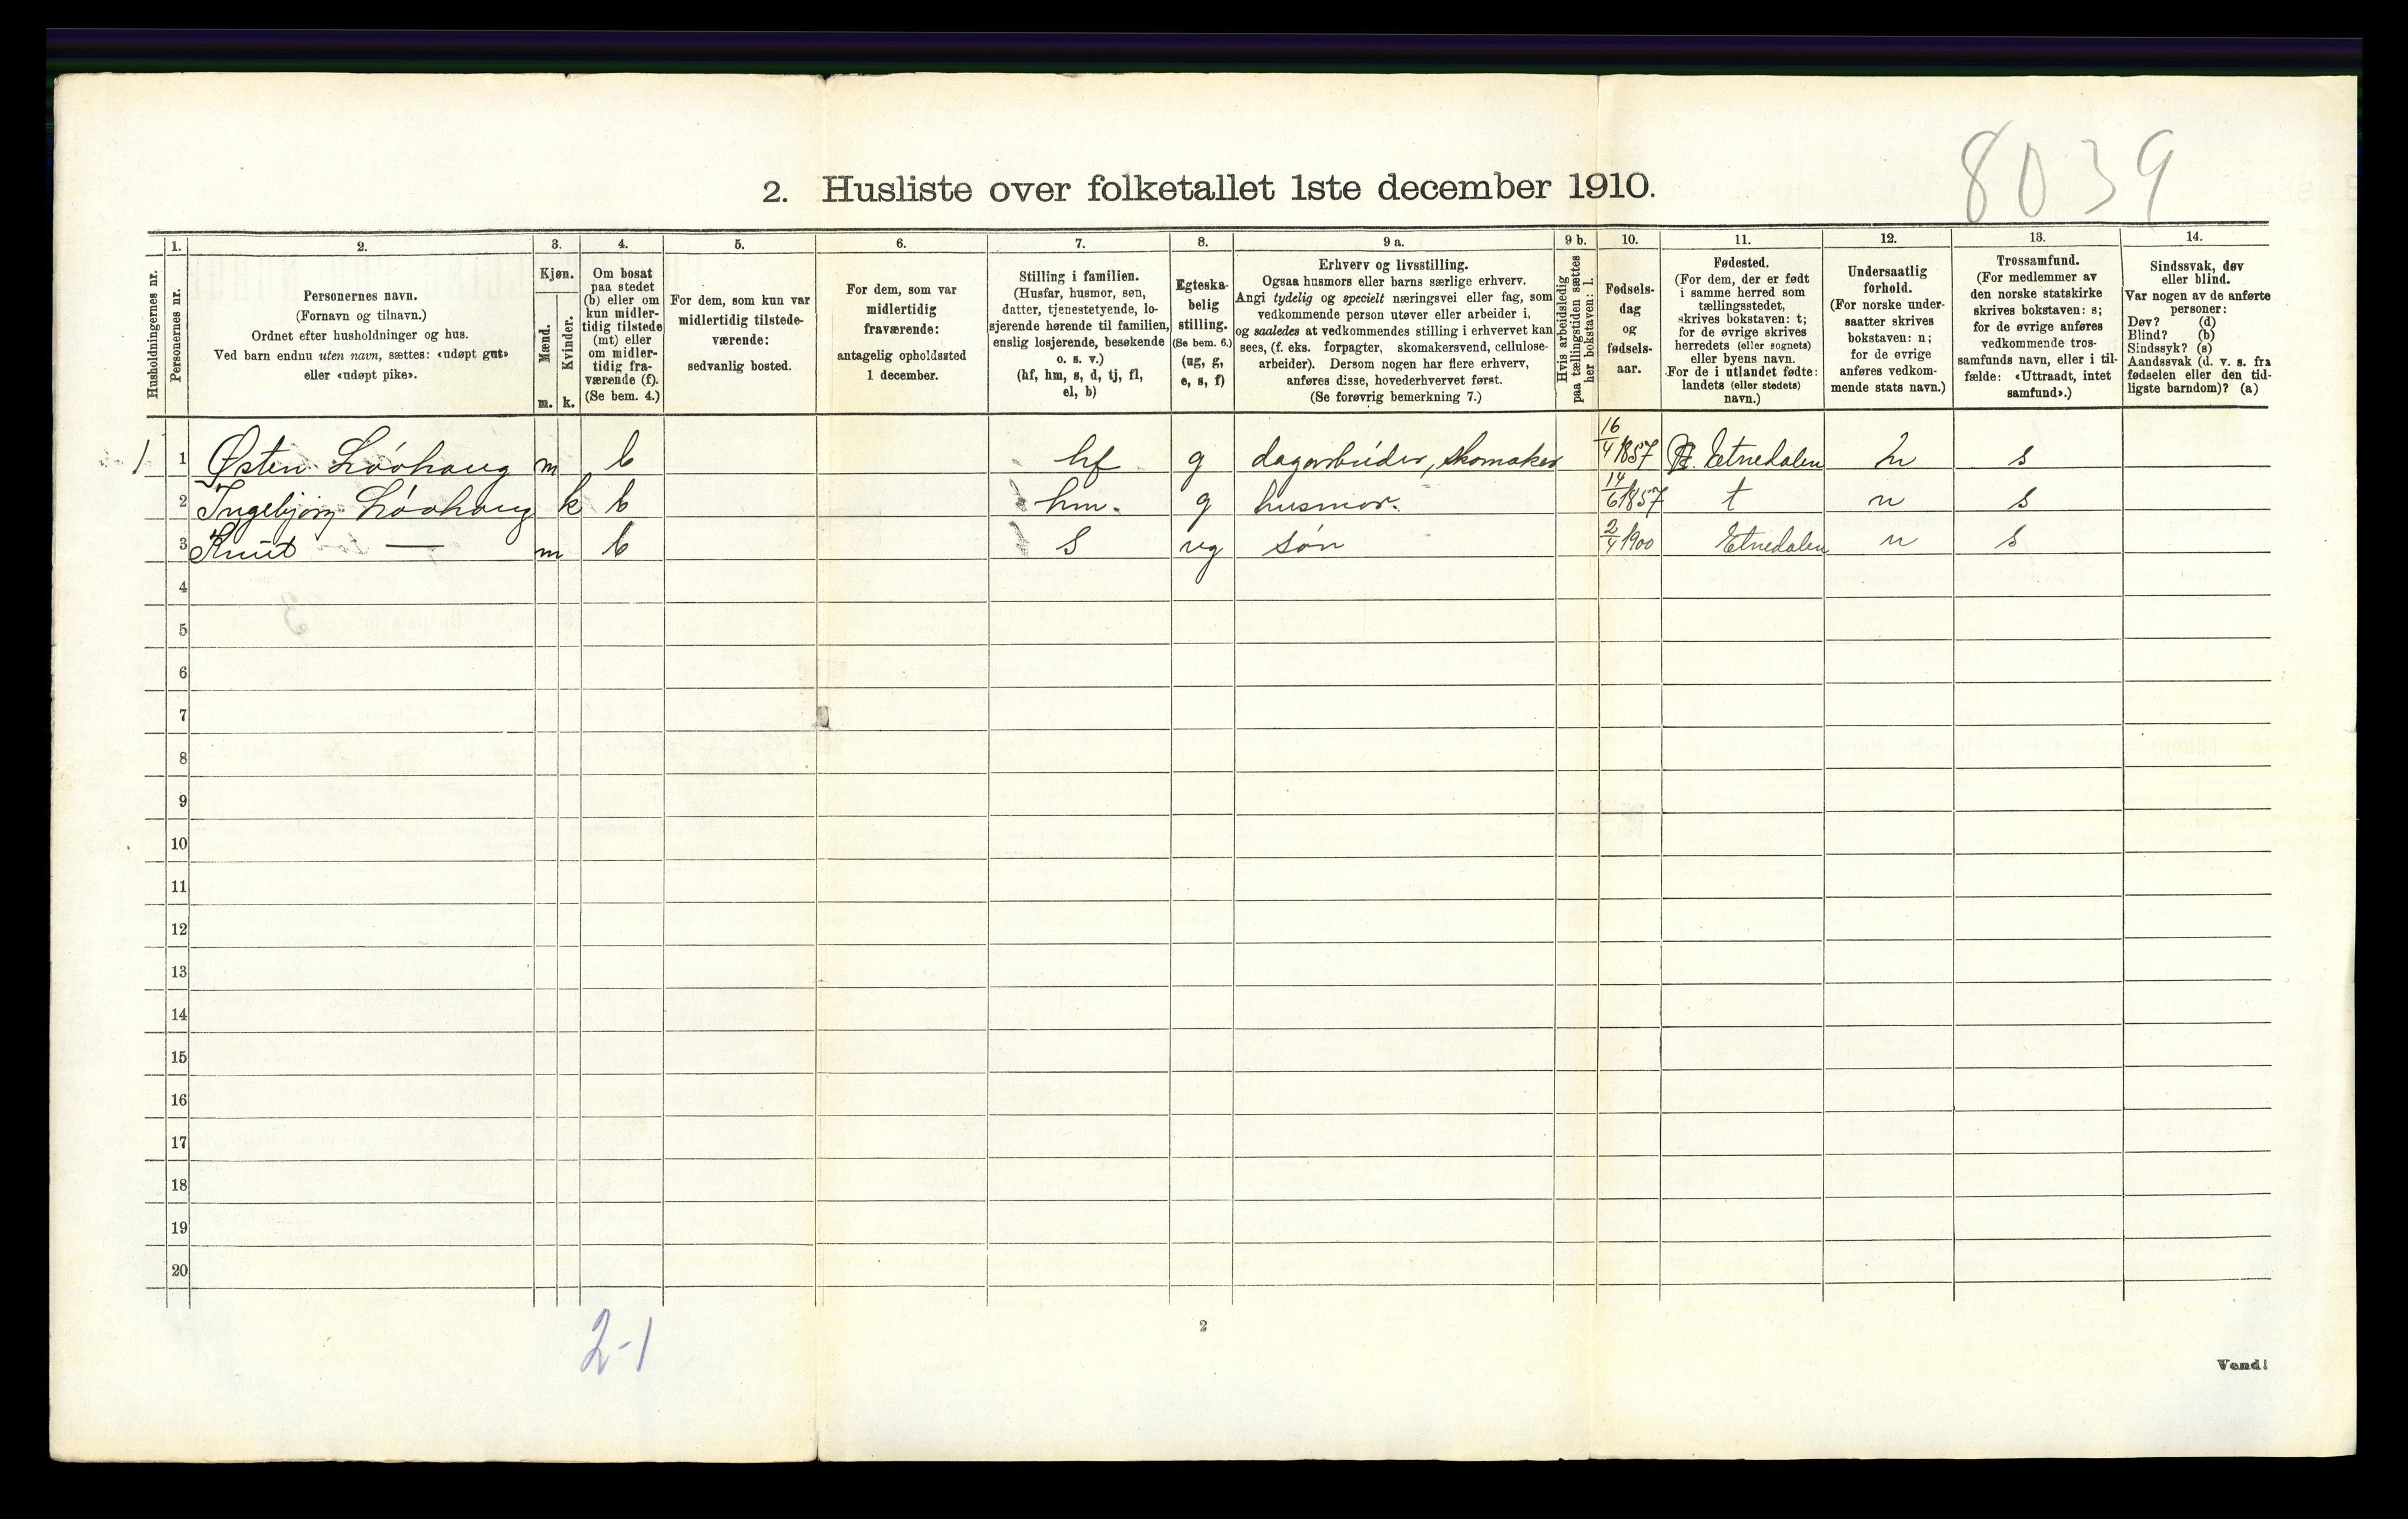 8039
2. Husliste over folketallet 1ste december 1910.
Husholdningernes nr.
1.
Personernes nr.
2.
Personernes navn.
(Fornavn og tilnavn.)
Ordnet efter husholdninger og hus.
Ved barn endnu uten navn, sættes: «udøpt gut»
eller «udøpt pike».
3.
Kjøn.
Mænd.
Kvinder.
m. k.
4.
Om bosat
paa stedet
(b) eller om
kun midler-
tidig tilstede
(mt) eller
om midler-
tidig fra-
værende (f).
(Se bem. 4.)
5.
For dem, som kun var
midlertidig tilstede-
værende:
sedvanlig bosted.
6.
For dem, som var
midlertidig
fraværende:
antagelig opholdssted
1 december.
7.
Stilling i familien.
(Husfar, husmor, søn,
datter, tjenestetyende, lo-
sjerende hørende til familien,
enslig losjerende, besøkende
o. s. v.)
(hf, hm, s, d, tj, fl,
el, b)
8.
Egteska-
belig
stilling.
(Se bem. 6.)
(ug, g,
e, s, f)
9 a.
Erhverv og livsstilling.
Ogsaa husmors eller barns særlige erhverv.
Angi tydelig og specielt næringsvei eller fag, som
vedkommende person utøver eller arbeider i,
og saaledes at vedkommendes stilling i erhvervet kan
sees, (f. eks. forpagter, skomakersvend, cellulose-
arbeider). Dersom nogen har flere erhverv,
anføres disse, hovederhvervet først.
(Se forøvrig bemerkning 7.)
9 b.
Hvis arbeidsledig
paa tællingstiden sættes
her bokstaven: l.
10.
Fødsels-
dag
og
fødsels-
aar.
11.
Fødested.
(For dem, der er født
i samme herred som
tællingsstedet,
skrives bokstaven: t;
for de øvrige skrives
herredets (eller sognets)
eller byens navn.
For de i utlandet fødte:
landets (eller stedets)
navn.)
12.
Undersaatlig
forhold.
(For norske under-
saatter skrives
bokstaven: n;
for de øvrige
anføres vedkom-
mende stats navn.)
13.
Trossamfund.
(For medlemmer av
den norske statskirke
skrives bokstaven: s;
for de øvrige anføres
vedkommende tros-
samfunds navn, eller i til-
fælde: «Uttraadt, intet
samfund».)
14.
Sindssvak, døv
eller blind.
Var nogen av de anførte
personer:
Døv? (d)
Blind? (b)
Sindssyk? (s)
Aandssvak (d. v. s. fra
fødselen eller den tid-
ligste barndom)? (a)
1 1 Østen Lóvhaug m b hf g dagarbeider, skomaker 16/4 1857 Etnedalen n s
2 Ingebjørg Lóvhaug k b hm. g husmor. 14/6 1857 t n s
3 Knut — m b s ug søn 2/4 1900 Etnedalen n s
4
5
6
7
8
9
10
11
12
13
14
15
16
17
18
19
20
2-1
2
Vend!